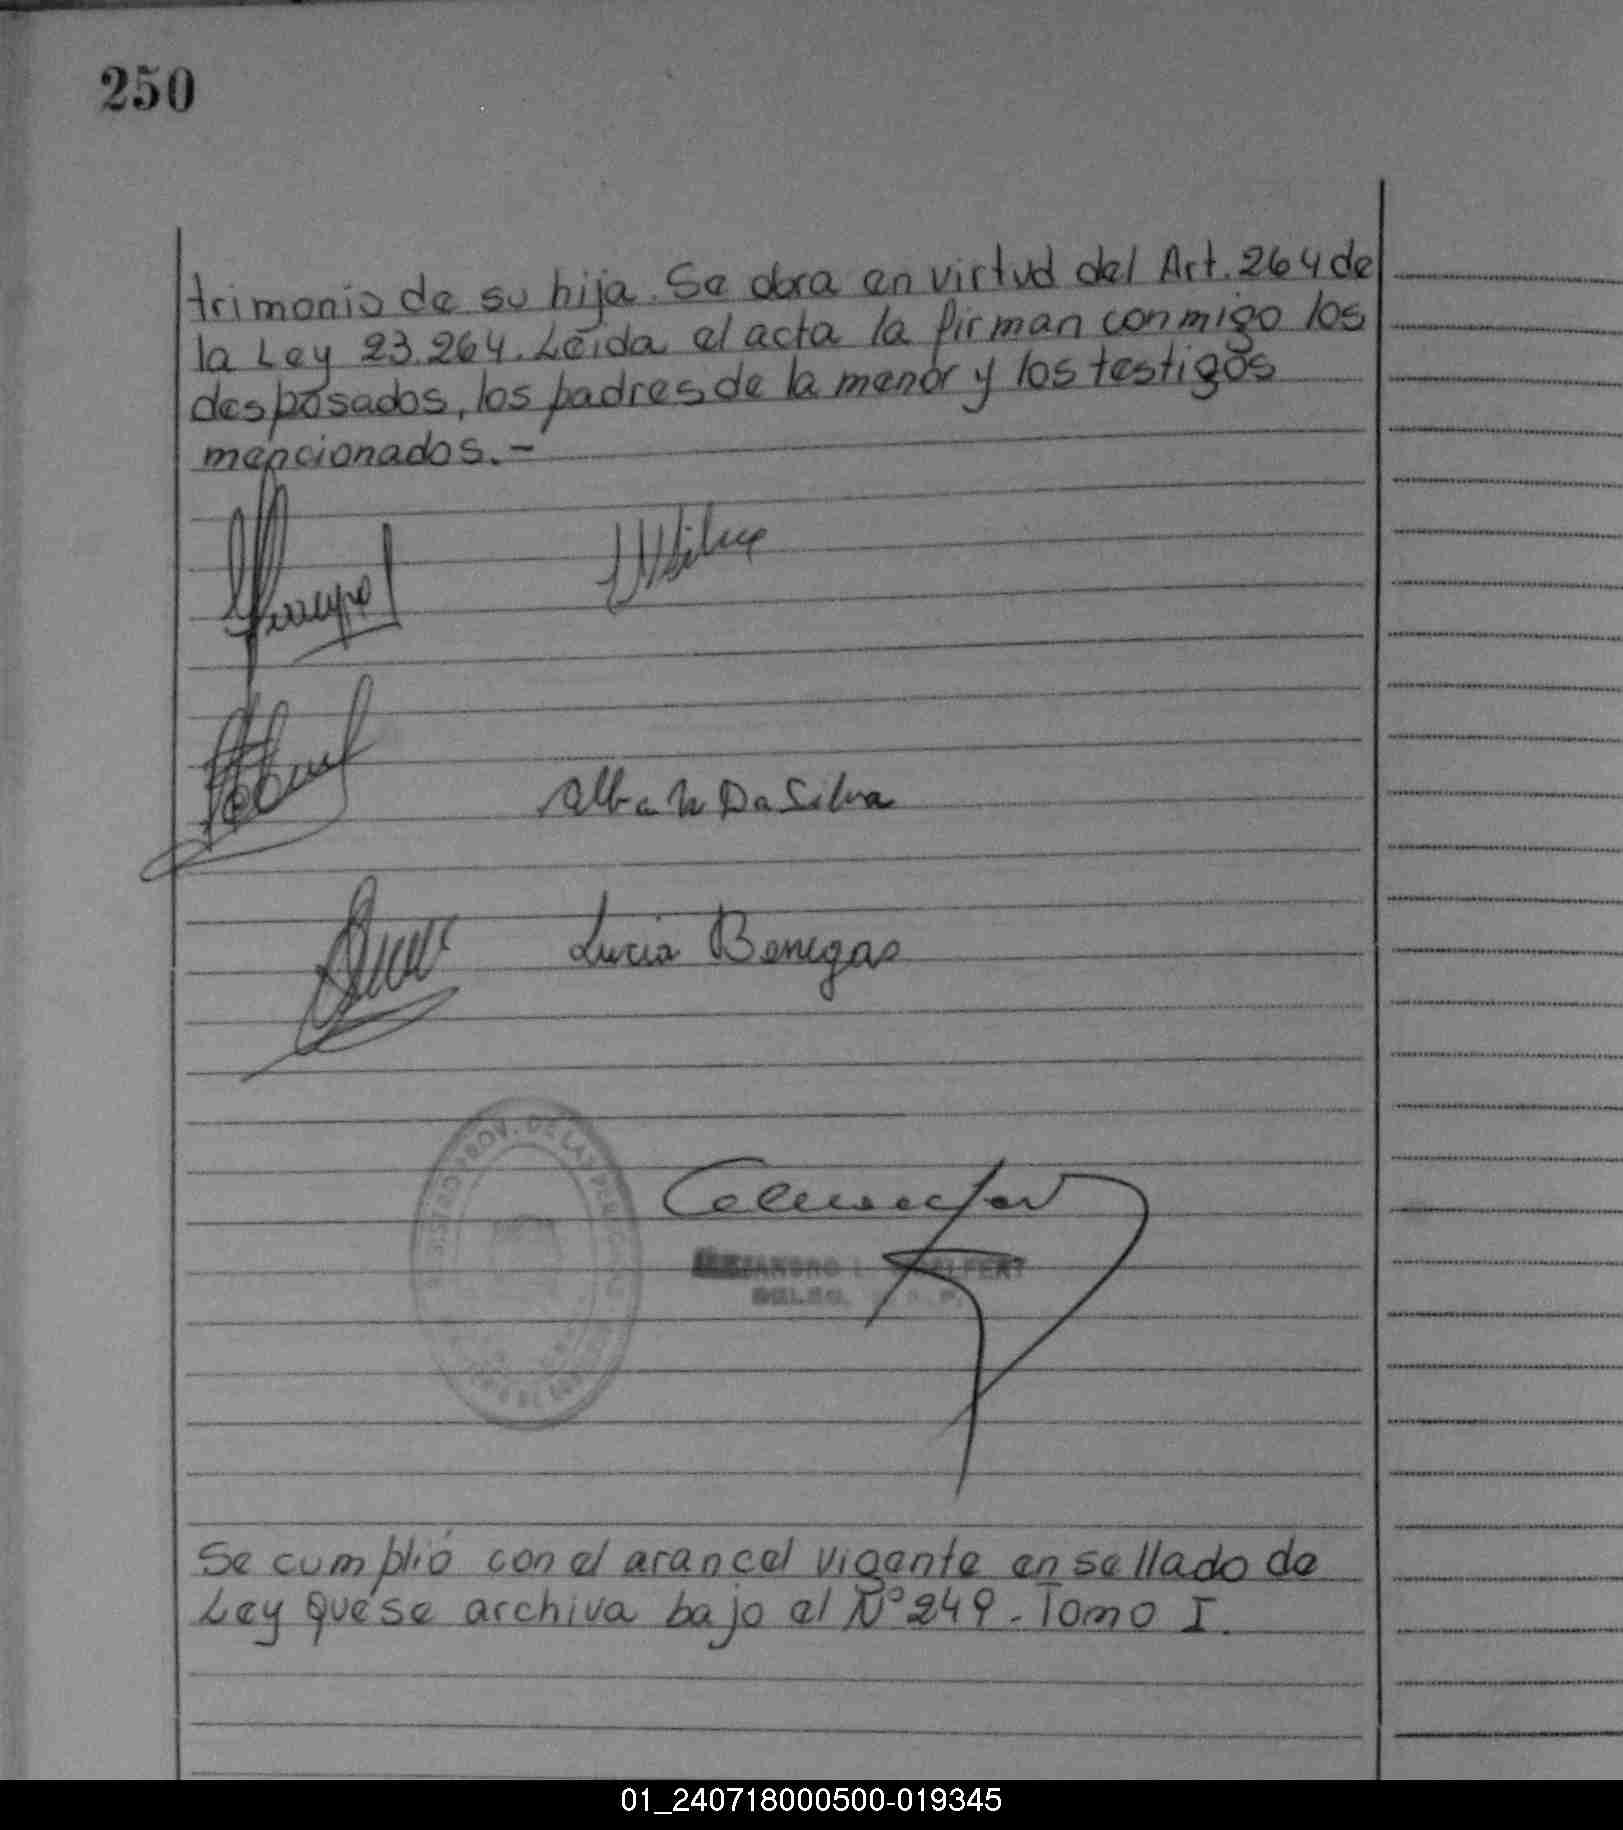 250
trimonio de su hija. Se obra en virtud del Art. 264 de
la Ley 23.264. Leida el acta la firman conmigo los
desposados, los padres de la menor y los testigos
mencionados. -
Alba Da Silva
Lucia Benegas
PROV. DE LAS PERSONAS
Se cumplió con el arancel vigente en sellado de
Ley que se archiva bajo el Nº 249 - Tomo I.
01_240718000500-019345